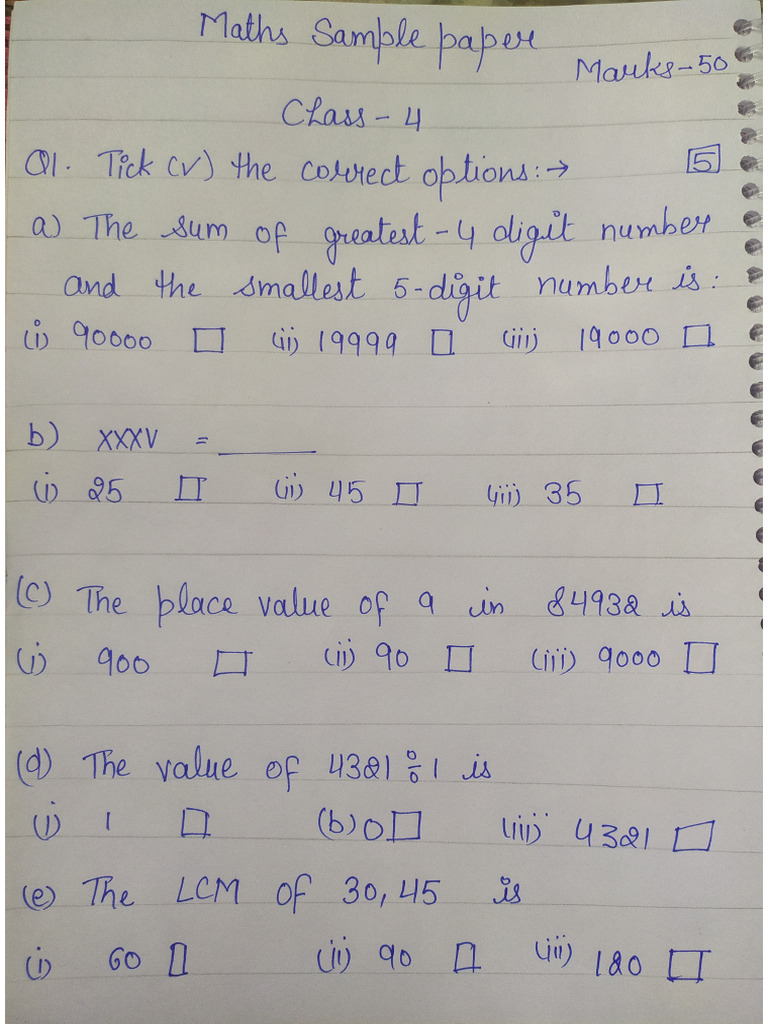 Maths Sample paper
Marks-50
Class-4
Q1. Tick (√) the correct options:→ 5
a) The sum of greatest-4 digit number
and the smallest 5-digit number is:
(i) 90000 □ (ii) 19999 □ (iii) 19000 □
b) XXXV = ______
(i) 25 □ (ii) 45 □ (iii) 35 □
(c) The place value of 9 in 84932 is
(i) 900 □ (ii) 90 □ (iii) 9000 □
(d) The value of 4321 ÷ 1 is
(i) 1 □ (b) 0 □ (iii) 4321 □
(e) The LCM of 30, 45 is
(i) 60 □ (ii) 90 □ (iii) 180 □